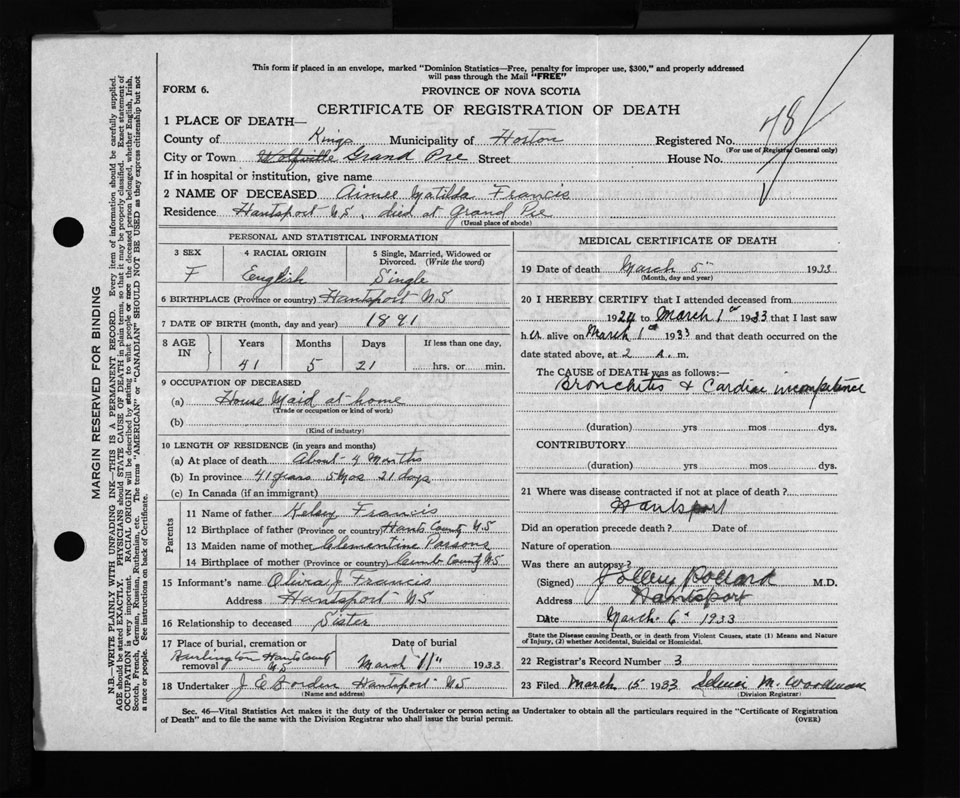 This form if placed in an envelope, marked "Dominion Statistics—Free, penalty for improper use, $300," and properly addressed
will pass through the Mail "FREE"
FORM 6.
PROVINCE OF NOVA SCOTIA
CERTIFICATE OF REGISTRATION OF DEATH
48
1 PLACE OF DEATH—
County of Kings Municipality of Horton Registered No.
(For use of Registrar General only)
City or Town Wolfville Grand Pre Street House No.
If in hospital or institution, give name
2 NAME OF DECEASED Aimee Matilda Francis
Residence Hantsport N.S., died at Grand Pre
(Usual place of abode)
PERSONAL AND STATISTICAL INFORMATION
3 SEX 4 RACIAL ORIGIN 5 Single, Married, Widowed or Divorced. (Write the word)
F English Single
6 BIRTHPLACE (Province or country) Hantsport N.S
7 DATE OF BIRTH (month, day and year) 1891
8 AGE IN Years Months Days If less than one day,
41 5 21 hrs. or min.
9 OCCUPATION OF DECEASED
(a) House Maid at home
(Trade or occupation or kind of work)
(b)
(Kind of industry)
10 LENGTH OF RESIDENCE (in years and months)
(a) At place of death About 4 Months
(b) In province 41 years 5 mos 21 days
(c) In Canada (if an immigrant)
Parents
11 Name of father Kelsey Francis
12 Birthplace of father (Province or country) Hants County N.S
13 Maiden name of mother Clementine Parsons
14 Birthplace of mother (Province or country) Cumb County N.S
15 Informant's name J. Francis
Address Hantsport N.S
16 Relationship to deceased Sister
17 Place of burial, cremation or removal Date of burial
Burlington Hants County N.S March 11" 1933
18 Undertaker J. E Borden Hantsport N.S
(Name and address)
MEDICAL CERTIFICATE OF DEATH
19 Date of death March 5 1933
(Month, day and year)
20 I HEREBY CERTIFY that I attended deceased from
1924 to March 1 1933 that I last saw
h er alive on March 1 1933 and that death occurred on the
date stated above, at 2 a. m.
The CAUSE of DEATH was as follows:—
Bronchitis & Cardiac incompetence
(duration) yrs mos dys.
CONTRIBUTORY
(duration) yrs mos dys.
21 Where was disease contracted if not at place of death?
Hantsport
Did an operation precede death? Date of
Nature of operation
Was there an autopsy?
(Signed) Pollard M.D.
Address Hantsport
Date March 6 1933
State the Disease causing Death, or in death from Violent Causes, state (1) Means and Nature
of Injury, (2) whether Accidental, Suicidal or Homicidal.
22 Registrar's Record Number 3
23 Filed March 15 1933 M. Woodman
(Division Registrar)
Sec. 46—Vital Statistics Act makes it the duty of the Undertaker or person acting as Undertaker to obtain all the particulars required in the "Certificate of Registration
of Death" and to file the same with the Division Registrar who shall issue the burial permit.
(OVER)
MARGIN RESERVED FOR BINDING
N.B.—WRITE PLAINLY WITH UNFADING INK—THIS IS A PERMANENT RECORD. Every item of information should be carefully supplied.
AGE should be stated EXACTLY. PHYSICIANS should STATE CAUSE OF DEATH in plain terms, so that it may be properly classified. Exact statement of
OCCUPATION is very important. RACIAL ORIGIN will be described by stating to what people or race the deceased person belonged, whether English, Irish,
Scotch, French, German, Russian, Ruthenian, etc. The terms "AMERICAN" or "CANADIAN" SHOULD NOT BE USED as they express citizenship but not
a race or people. See instructions on back of Certificate.